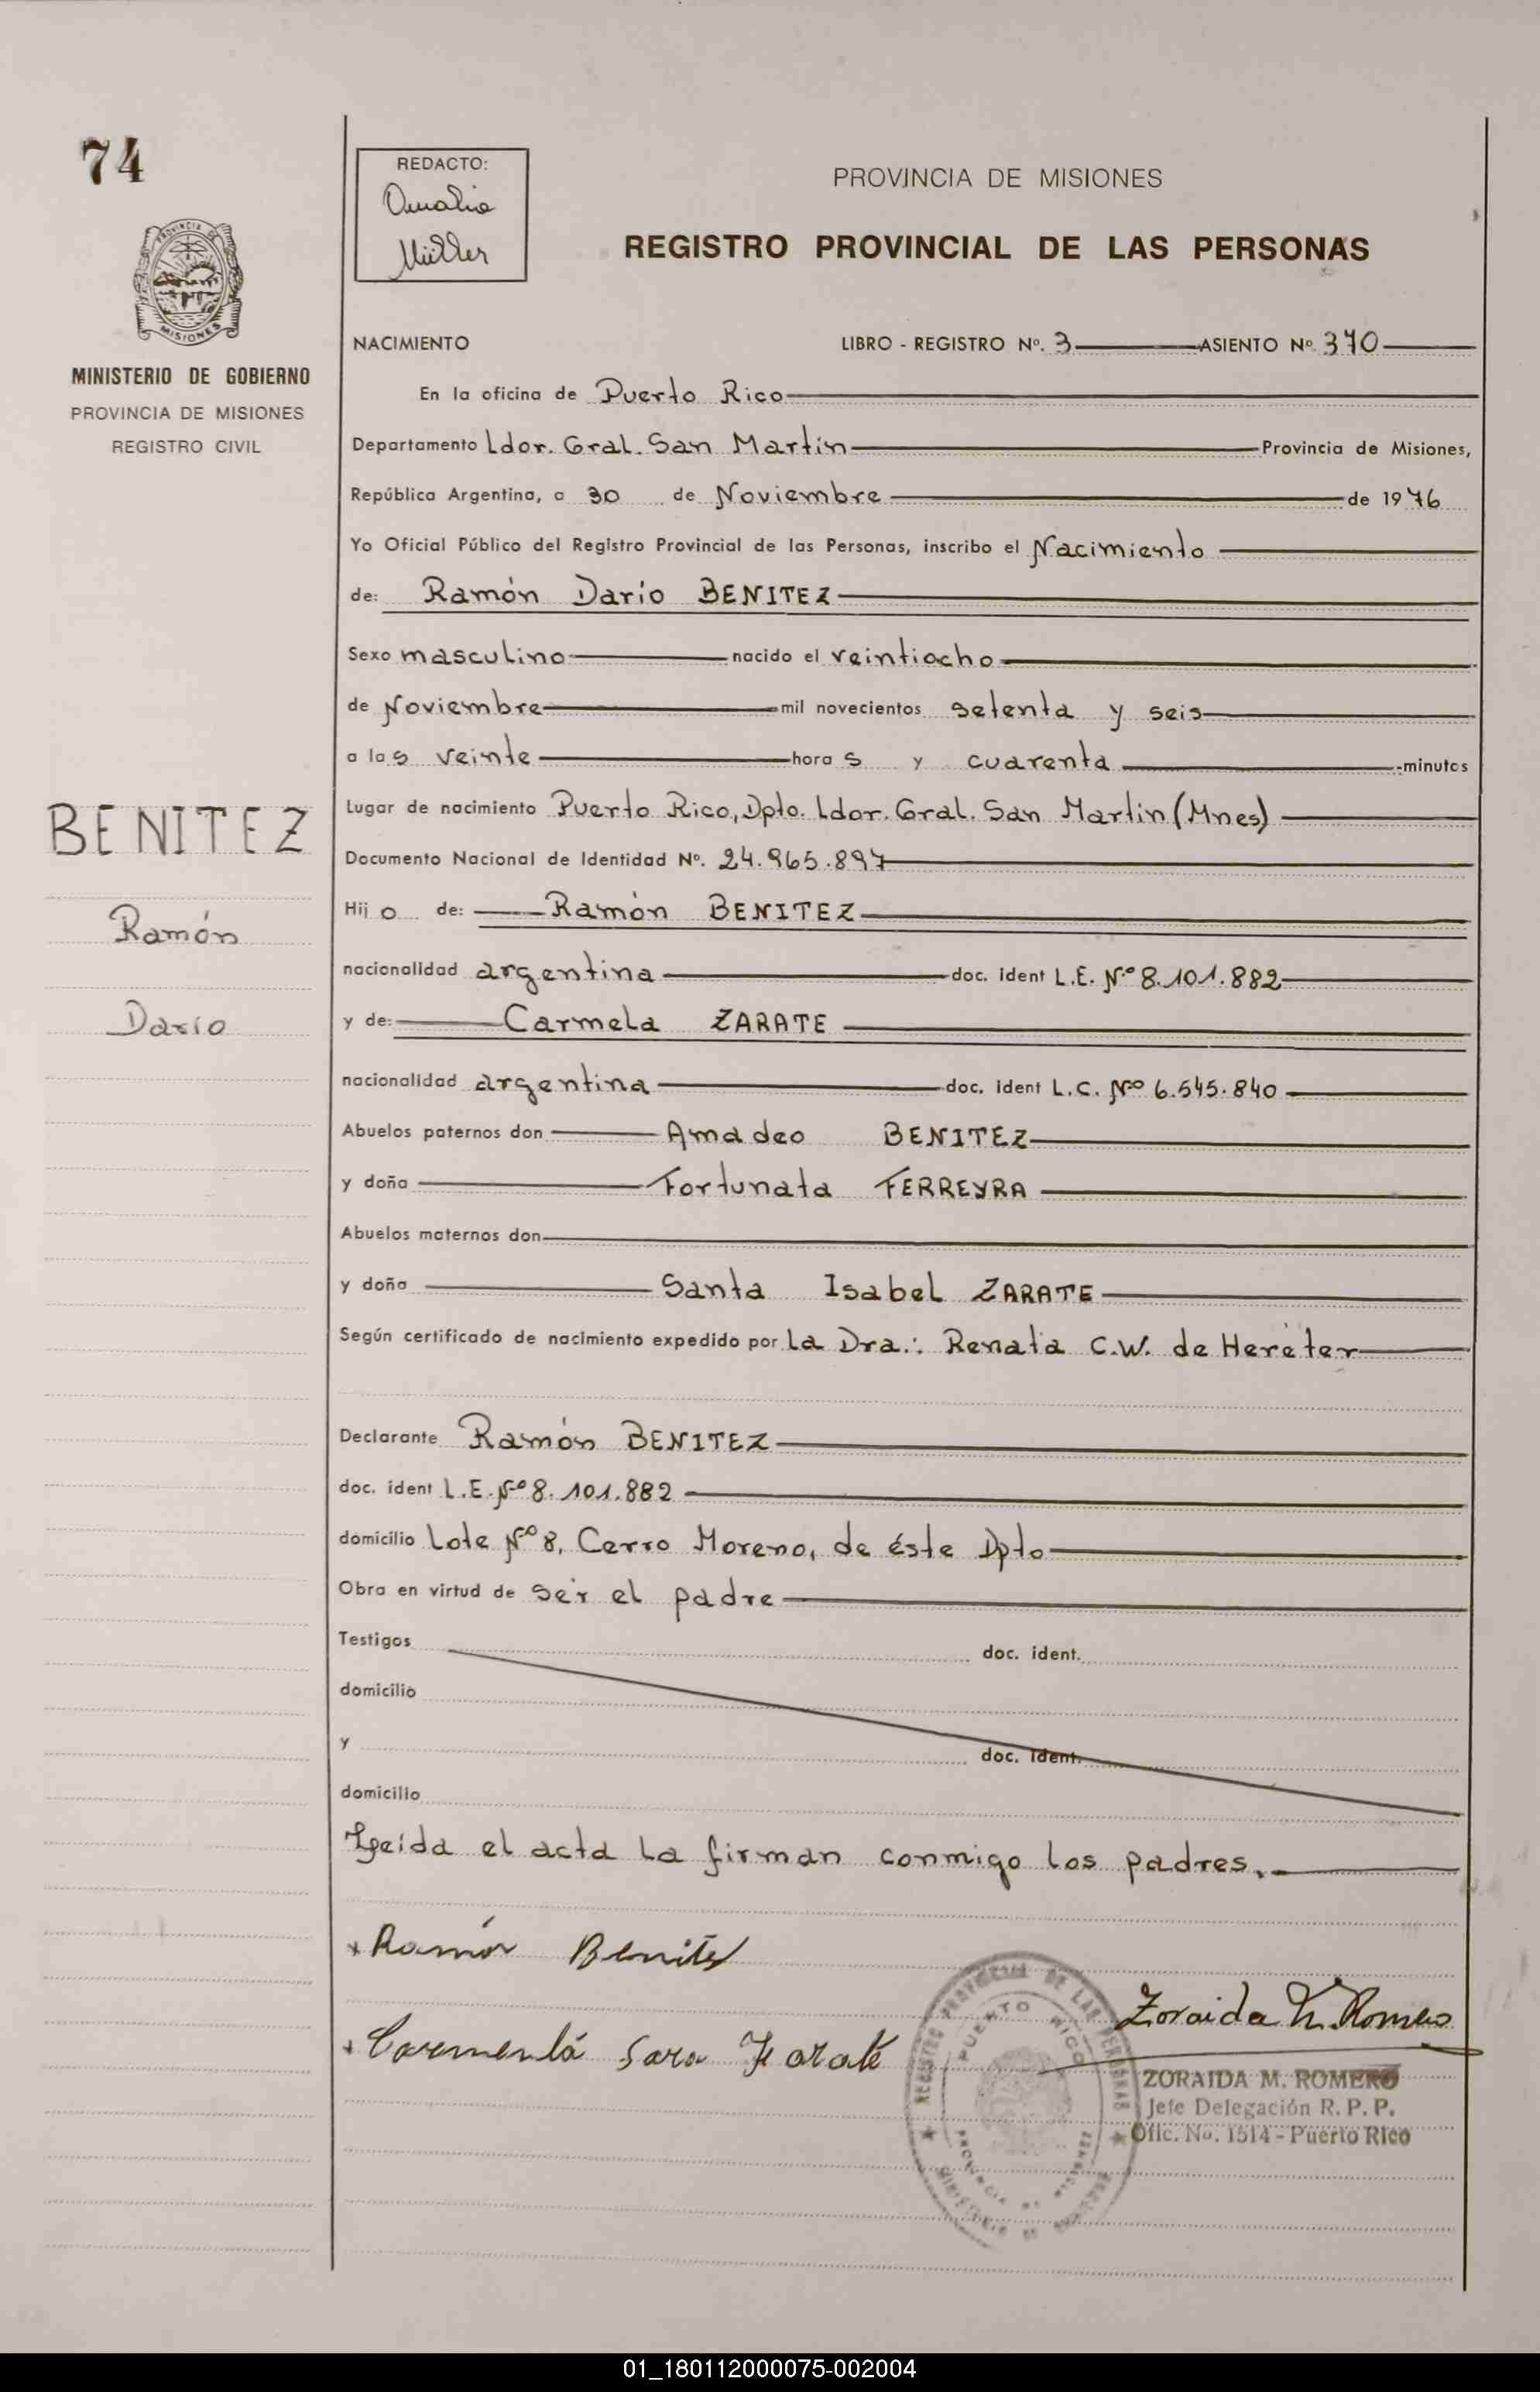 74
REDACTO:
Amalia
Müller
PROVINCIA DE MISIONES
REGISTRO PROVINCIAL DE LAS PERSONAS
PROVINCIA DE
MISIONES
MINISTERIO DE GOBIERNO
PROVINCIA DE MISIONES
REGISTRO CIVIL
NACIMIENTO LIBRO - REGISTRO Nº. 3 ASIENTO Nº 370
En la oficina de Puerto Rico
Departamento Ldor. Gral. San Martin Provincia de Misiones,
República Argentina, a 30 de Noviembre de 1976
Yo Oficial Público del Registro Provincial de las Personas, inscribo el Nacimiento
de: Ramón Dario BENITEZ
Sexo masculino nacido el veintiocho
de Noviembre mil novecientos setenta y seis
a las veinte horas y cuarenta minutos
BENITEZ
Ramón
Darío
Lugar de nacimiento Puerto Rico, Dpto. Ldor. Gral. San Martin (Mnes)
Documento Nacional de Identidad Nº. 24.965.897
Hijo de: Ramón BENITEZ
nacionalidad argentina doc. ident L.E. Nº 8.101.882
y de: Carmela ZARATE
nacionalidad argentina doc. ident L.C. Nº 6.545.840
Abuelos paternos don Amadeo BENITEZ
y doña Fortunata FERREYRA
Abuelos maternos don
y doña Santa Isabel ZARATE
Según certificado de nacimiento expedido por la Dra.: Renata C.W. de Heréter
Declarante Ramón BENITEZ
doc. ident L.E. Nº 8.101.882
domicilio Lote Nº 8, Cerro Moreno, de éste Dpto
Obra en virtud de ser el padre
Testigos doc. ident.
domicilio
y doc. ident.
domicilio
Leída el acta la firman conmigo los padres.
Ramón Benitez
Zoraida M. Romero
Sara Zaraté
REGISTRO PROVINCIAL DE LAS PERSONAS
PUERTO RICO
PROVINCIA DE MISIONES
MINISTERIO DE GOBIERNO
ZORAIDA M. ROMERO
Jefe Delegación R. P. P.
Ofic. No. 1514 - Puerto Rico
01_180112000075-002004